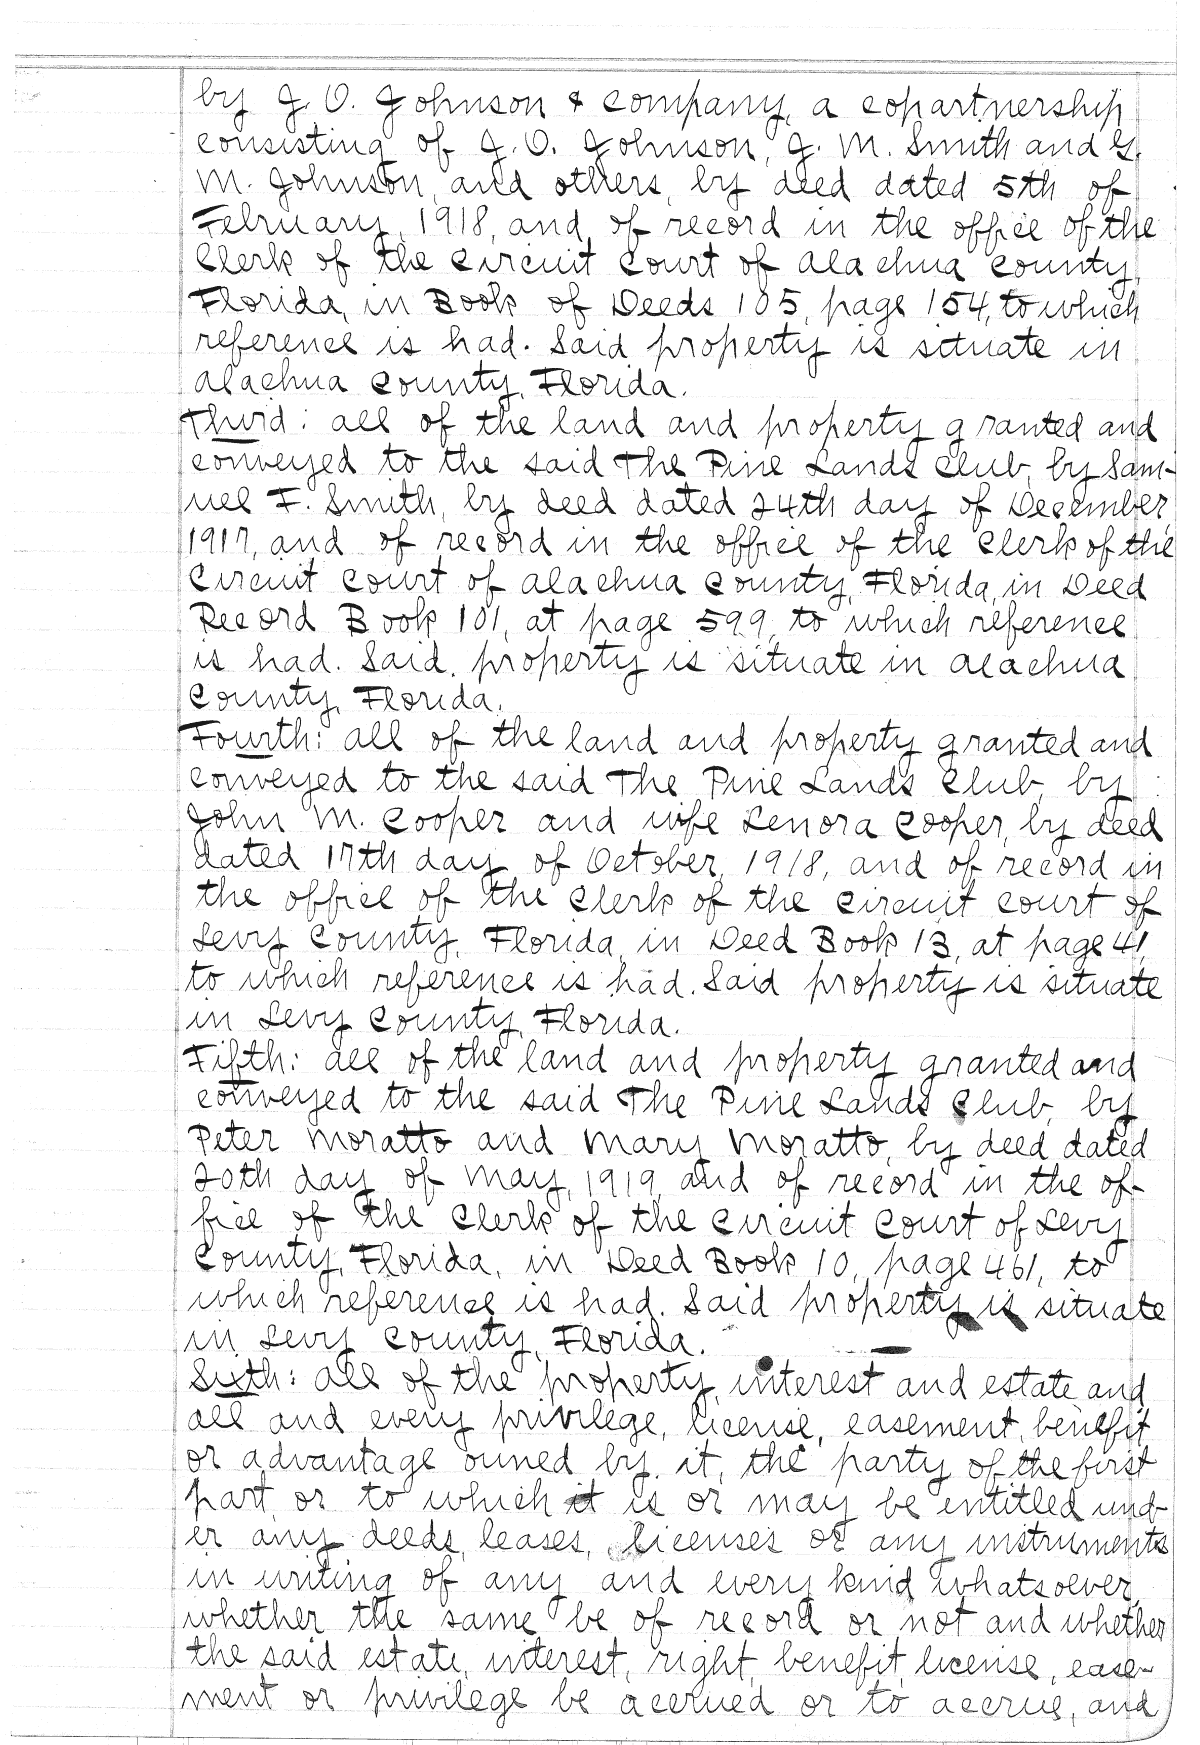 by J. O. Johnson & Company, a copartnership
consisting of J. O. Johnson, J. M. Smith and G.
M. Johnson, and others, by deed dated 5th of
February, 1918, and of record in the office of the
Clerk of the Circuit Court of Alachua County,
Florida, in Book of Deeds 105, page 154, to which
reference is had. Said property is situate in
Alachua County, Florida.
Third: All of the land and property granted and
conveyed to the said The Pine Lands Club, by Sam-
uel F. Smith, by deed dated 24th day of December,
1917, and of record in the office of the Clerk of the
Circuit Court of Alachua County, Florida, in Deed
Record Book 101, at page 599, to which reference
is had. Said property is situate in Alachua
County, Florida.
Fourth: All of the land and property granted and
conveyed to the said The Pine Lands Club, by
John M. Cooper and wife Lenora Cooper, by deed
dated 17th day of October, 1918, and of record in
the office of the Clerk of the Circuit Court of
Levy County, Florida, in Deed Book 13, at page 41,
to which reference is had. Said property is situate
in Levy County, Florida.
Fifth: All of the land and property granted and
conveyed to the said The Pine Lands Club, by
Peter Moratto and Mary Moratto, by deed dated
20th day of May, 1919, and of record in the of-
fice of the Clerk of the Circuit Court of Levy
County, Florida, in Deed Book 10, page 461, to
which reference is had. Said property is situate
in Levy County, Florida.
Sixth: All of the property, interest and estate and
all and every privilege, license, easement, benefit
or advantage owned by it, the party of the first
part, or to which it is or may be entitled und-
er any deeds, leases, licenses or any instruments
in writing of any and every kind whatsoever,
whether the same be of record or not and whether
the said estate, interest, right, benefit, license, ease-
ment or privilege be accrued or to accrue, and